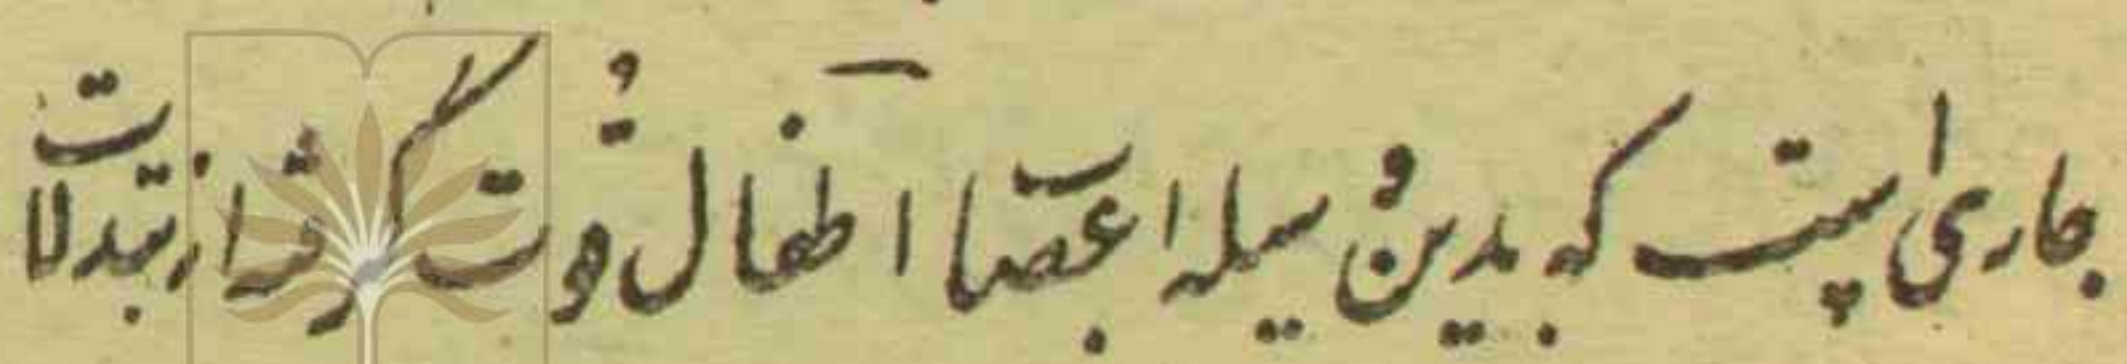 جاری است که بدین وسیله اعصاب اطفال قوت گرفته از تبدلات